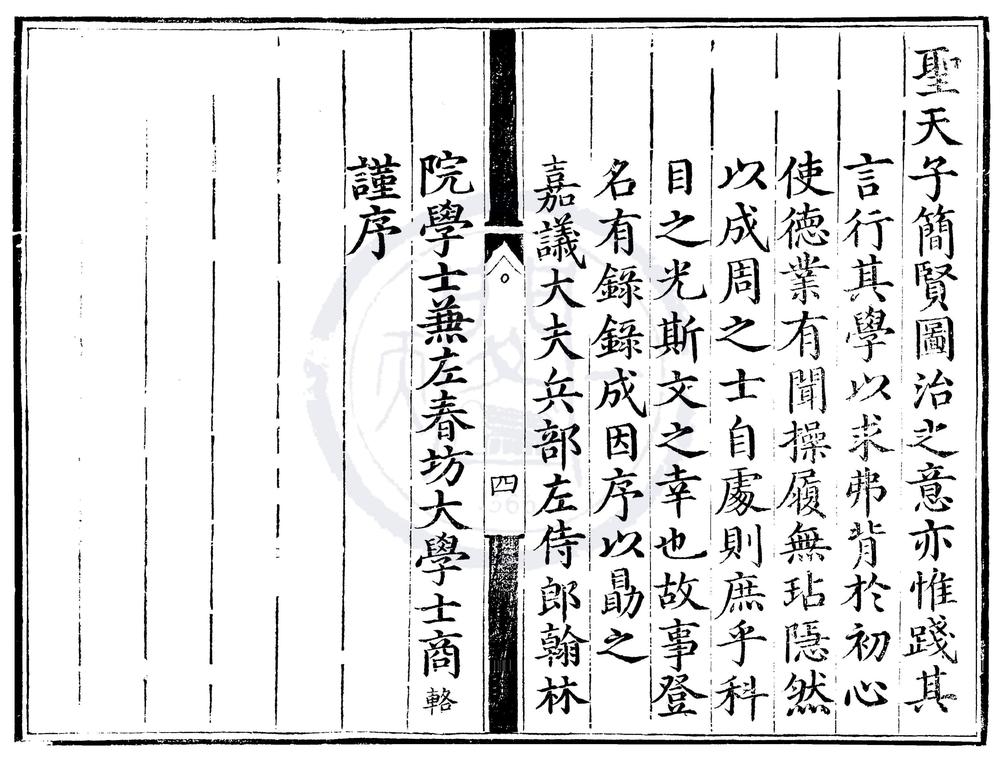 聖天子簡賢圖治之意亦惟踐其
言行其學以求弗背於初心
使德業有聞操履無玷隱然
以成周之士自處則庶乎科
目之光斯文之幸也故事登
名有錄錄成因序以勗之
嘉議大夫兵部左侍郎翰林
四
院學士兼左春坊大學士商輅
謹序